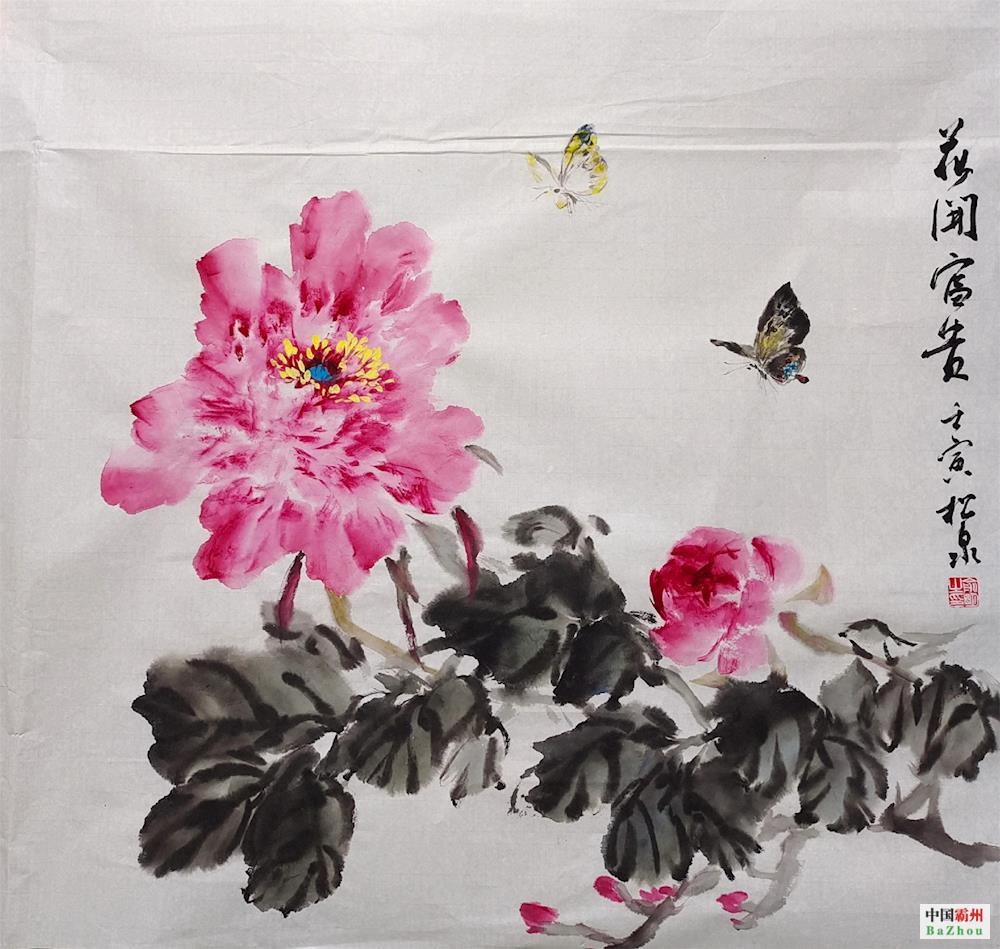 花開富贵
壬寅松泉
中国霸州
BaZhou